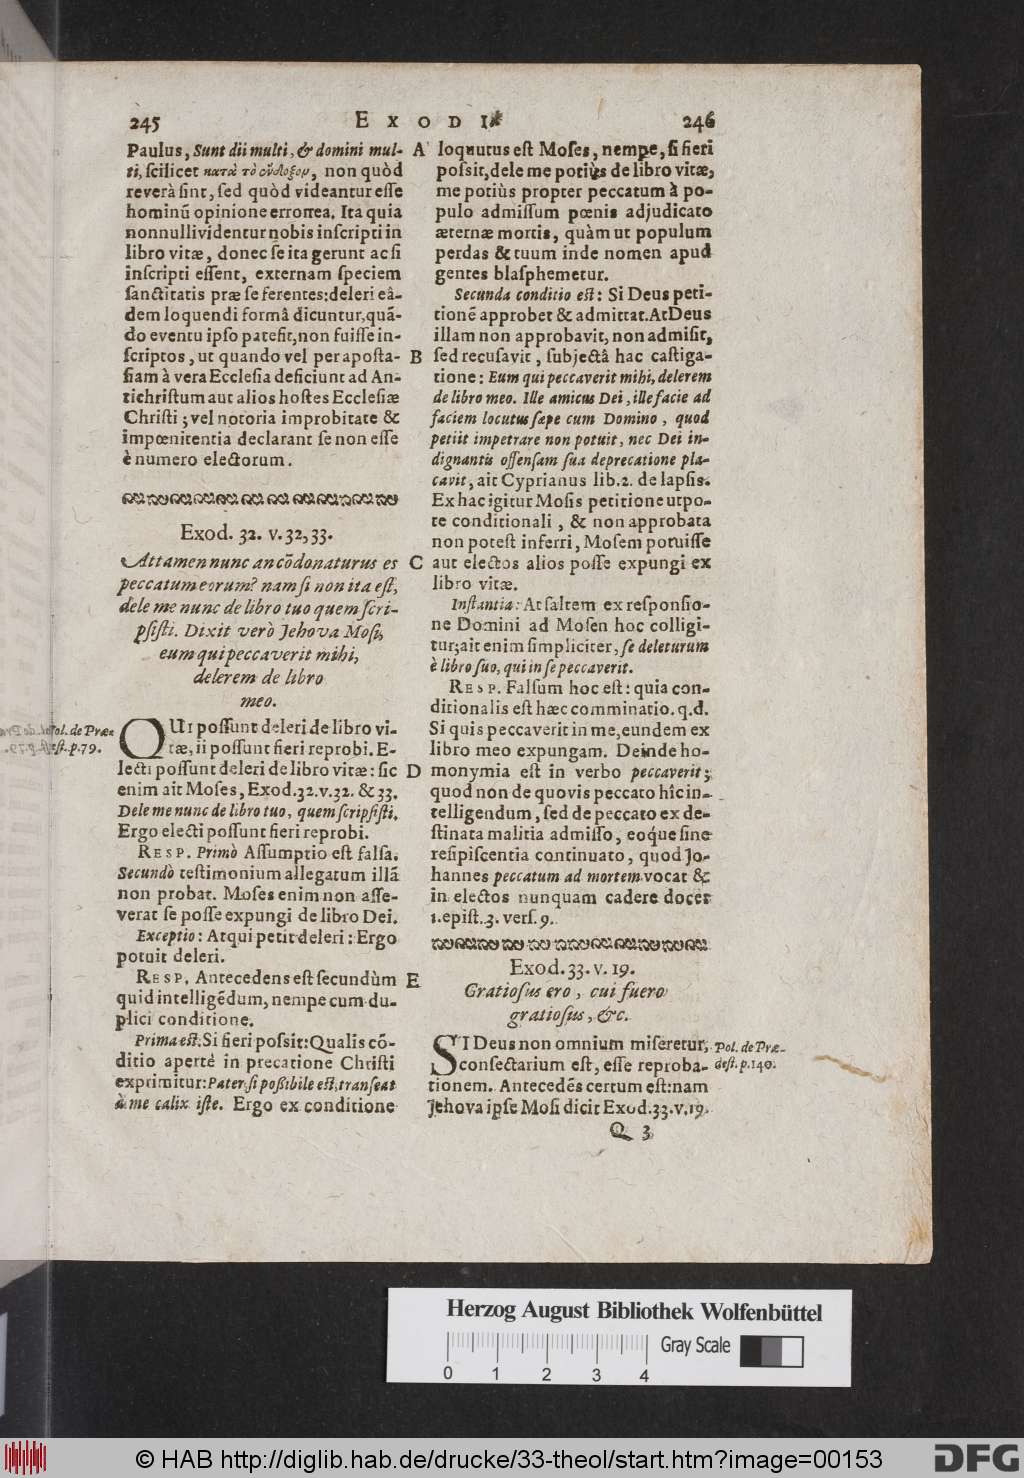 245
EXODI
246
Paulus, Sunt dii multi, & domini mul-
ti, scilicet κατὰ τὸ ἔνδοξον, non quòd
reverà sint, sed quòd videantur esse
hominū opinione erronea. Ita quia
nonnulli videntur nobis inscripti in
libro vitæ, donec se ita gerunt ac si
inscripti essent, externam speciem
sanctitatis præ se ferentes: deleri eâ-
dem loquendi formâ dicuntur, quā-
do eventu ipso patefit, non fuisse in-
scriptos, ut quando vel per aposta-
siam à vera Ecclesia deficiunt ad An-
tichristum aut alios hostes Ecclesiæ
Christi; vel notoria improbitate &
impœnitentia declarant se non esse
è numero electorum.
Exod. 32. v. 32, 33.
Attamen nunc an cōdonaturus es
peccatum eorum? nam si non ita est,
dele me nunc de libro tuo quem scri-
psisti. Dixit verò Jehova Mosi,
eum qui peccaverit mihi,
delerem de libro
meo.
Pol. de Præ-
dest. p. 79.
QUi possunt deleri de libro vi-
tæ, ii possunt fieri reprobi. E-
lecti possunt deleri de libro vitæ: sic
enim ait Moses, Exod. 32. v. 32. & 33.
Dele me nunc de libro tuo, quem scripsisti.
Ergo electi possunt fieri reprobi.
RESP. Primò Assumptio est falsa.
Secundò testimonium allegatum illā
non probat. Moses enim non asse-
verat se posse expungi de libro Dei.
Exceptio: Atqui petit deleri: Ergo
potuit deleri.
RESP. Antecedens est secundùm
quid intelligēdum, nempe cum du-
plici conditione.
Prima est: Si fieri possit: Qualis cō-
ditio apertè in precatione Christi
exprimitur: Pater, si possibile est, transeat
à me calix iste. Ergo ex conditione
A
B
C
D
E
loquutus est Moses, nempe, si fieri
possit, dele me potiùs de libro vitæ,
me potiùs propter peccatum à po-
pulo admissum pœnis adjudicato
æternæ mortis, quàm ut populum
perdas & tuum inde nomen apud
gentes blasphemetur.
Secunda conditio est: Si Deus peti-
tionē approbet & admittat. At Deus
illam non approbavit, non admisit,
sed recusavit, subjectâ hac castiga-
tione: Eum qui peccaverit mihi, delerem
de libro meo. Ille amicus Dei, ille facie ad
faciem locutus sæpe cum Domino, quod
petiit impetrare non potuit, nec Dei in-
dignantis offensam sua deprecatione pla-
cavit, ait Cyprianus lib. 2. de lapsis.
Ex hac igitur Mosis petitione utpo-
te conditionali, & non approbata
non potest inferri, Mosem potuisse
aut electos alios posse expungi ex
libro vitæ.
Instantia: At saltem ex responsio-
ne Domini ad Mosen hoc colligi-
tur; ait enim simpliciter, se deleturum
è libro suo, qui in se peccaverit.
RESP. Falsum hoc est: quia con-
ditionalis est hæc comminatio. q.d.
Si quis peccaverit in me, eundem ex
libro meo expungam. Deinde ho-
monymia est in verbo peccaverit;
quod non de quovis peccato hîc in-
telligendum, sed de peccato ex de-
stinata malitia admisso, eoque sine
resipiscentia continuato, quod Jo-
hannes peccatum ad mortem vocat &
in electos nunquam cadere docet
1. epist. 3. vers. 9.
Exod. 33. v. 19.
Gratiosus ero, cui fuero
gratiosus, &c.
SI Deus non omnium miseretur,
consectarium est, esse reproba-
tionem. Antecedēs certum est: nam
Jehova ipse Mosi dicit Exod. 33. v. 19.
Pol. de Præ-
dest. p. 140.
Q 3
Herzog August Bibliothek Wolfenbüttel
Gray Scale
0 1 2 3 4
© HAB http://diglib.hab.de/drucke/33-theol/start.htm?image=00153
DFG